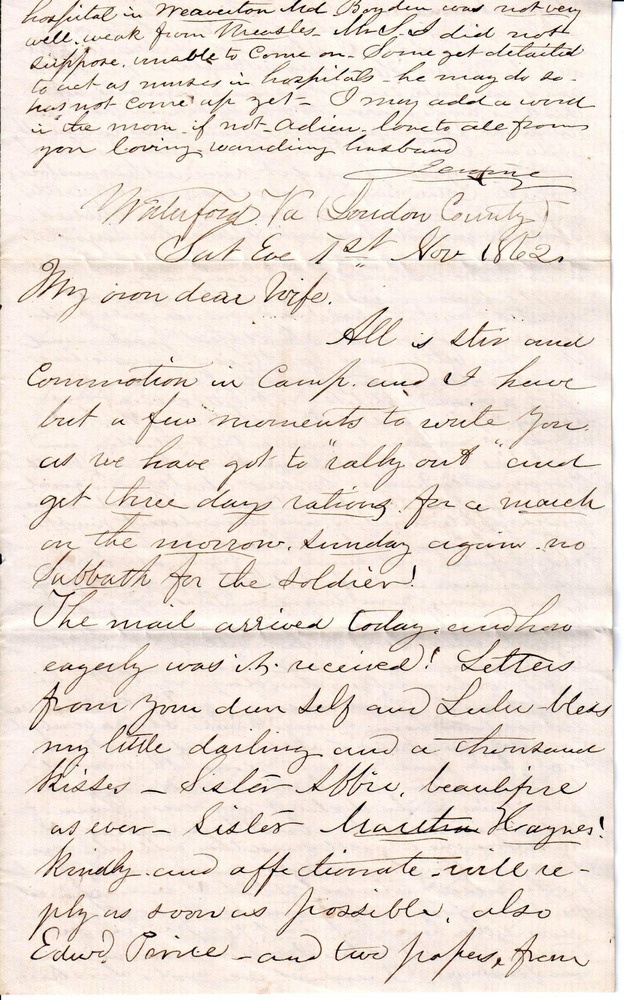 hospital in Weaverton Md Boyden was not very
well, weak from Measles. Mr S. I did not
suppose, unable to come on. Some get detailed
to act as nurses in hospitals - he may do so -
has not come up yet - I may add a word
in the morn. if not - adieu. love to all from
you loving wandering husband
Waterford Va (Loudon County)
Sat Eve 1st Nov 1862.
My own dear Wife.
All is stir and
Commotion in Camp. and I have
but a few moments to write you
as we have got to "rally out" and
get three days rations for a march
on the morrow. Sunday again - no
Sabbath for the soldier!
The mail arrived today. and how
eagerly was it received! Letters
from your dear self and Lulu - bless
my little darling and a thousand
kisses - Sister Abbie, beautiful
as ever - Sister Haynes!
kindly and affectionate - will re-
ply as soon as possible, also
Edwd. - and two papers, from